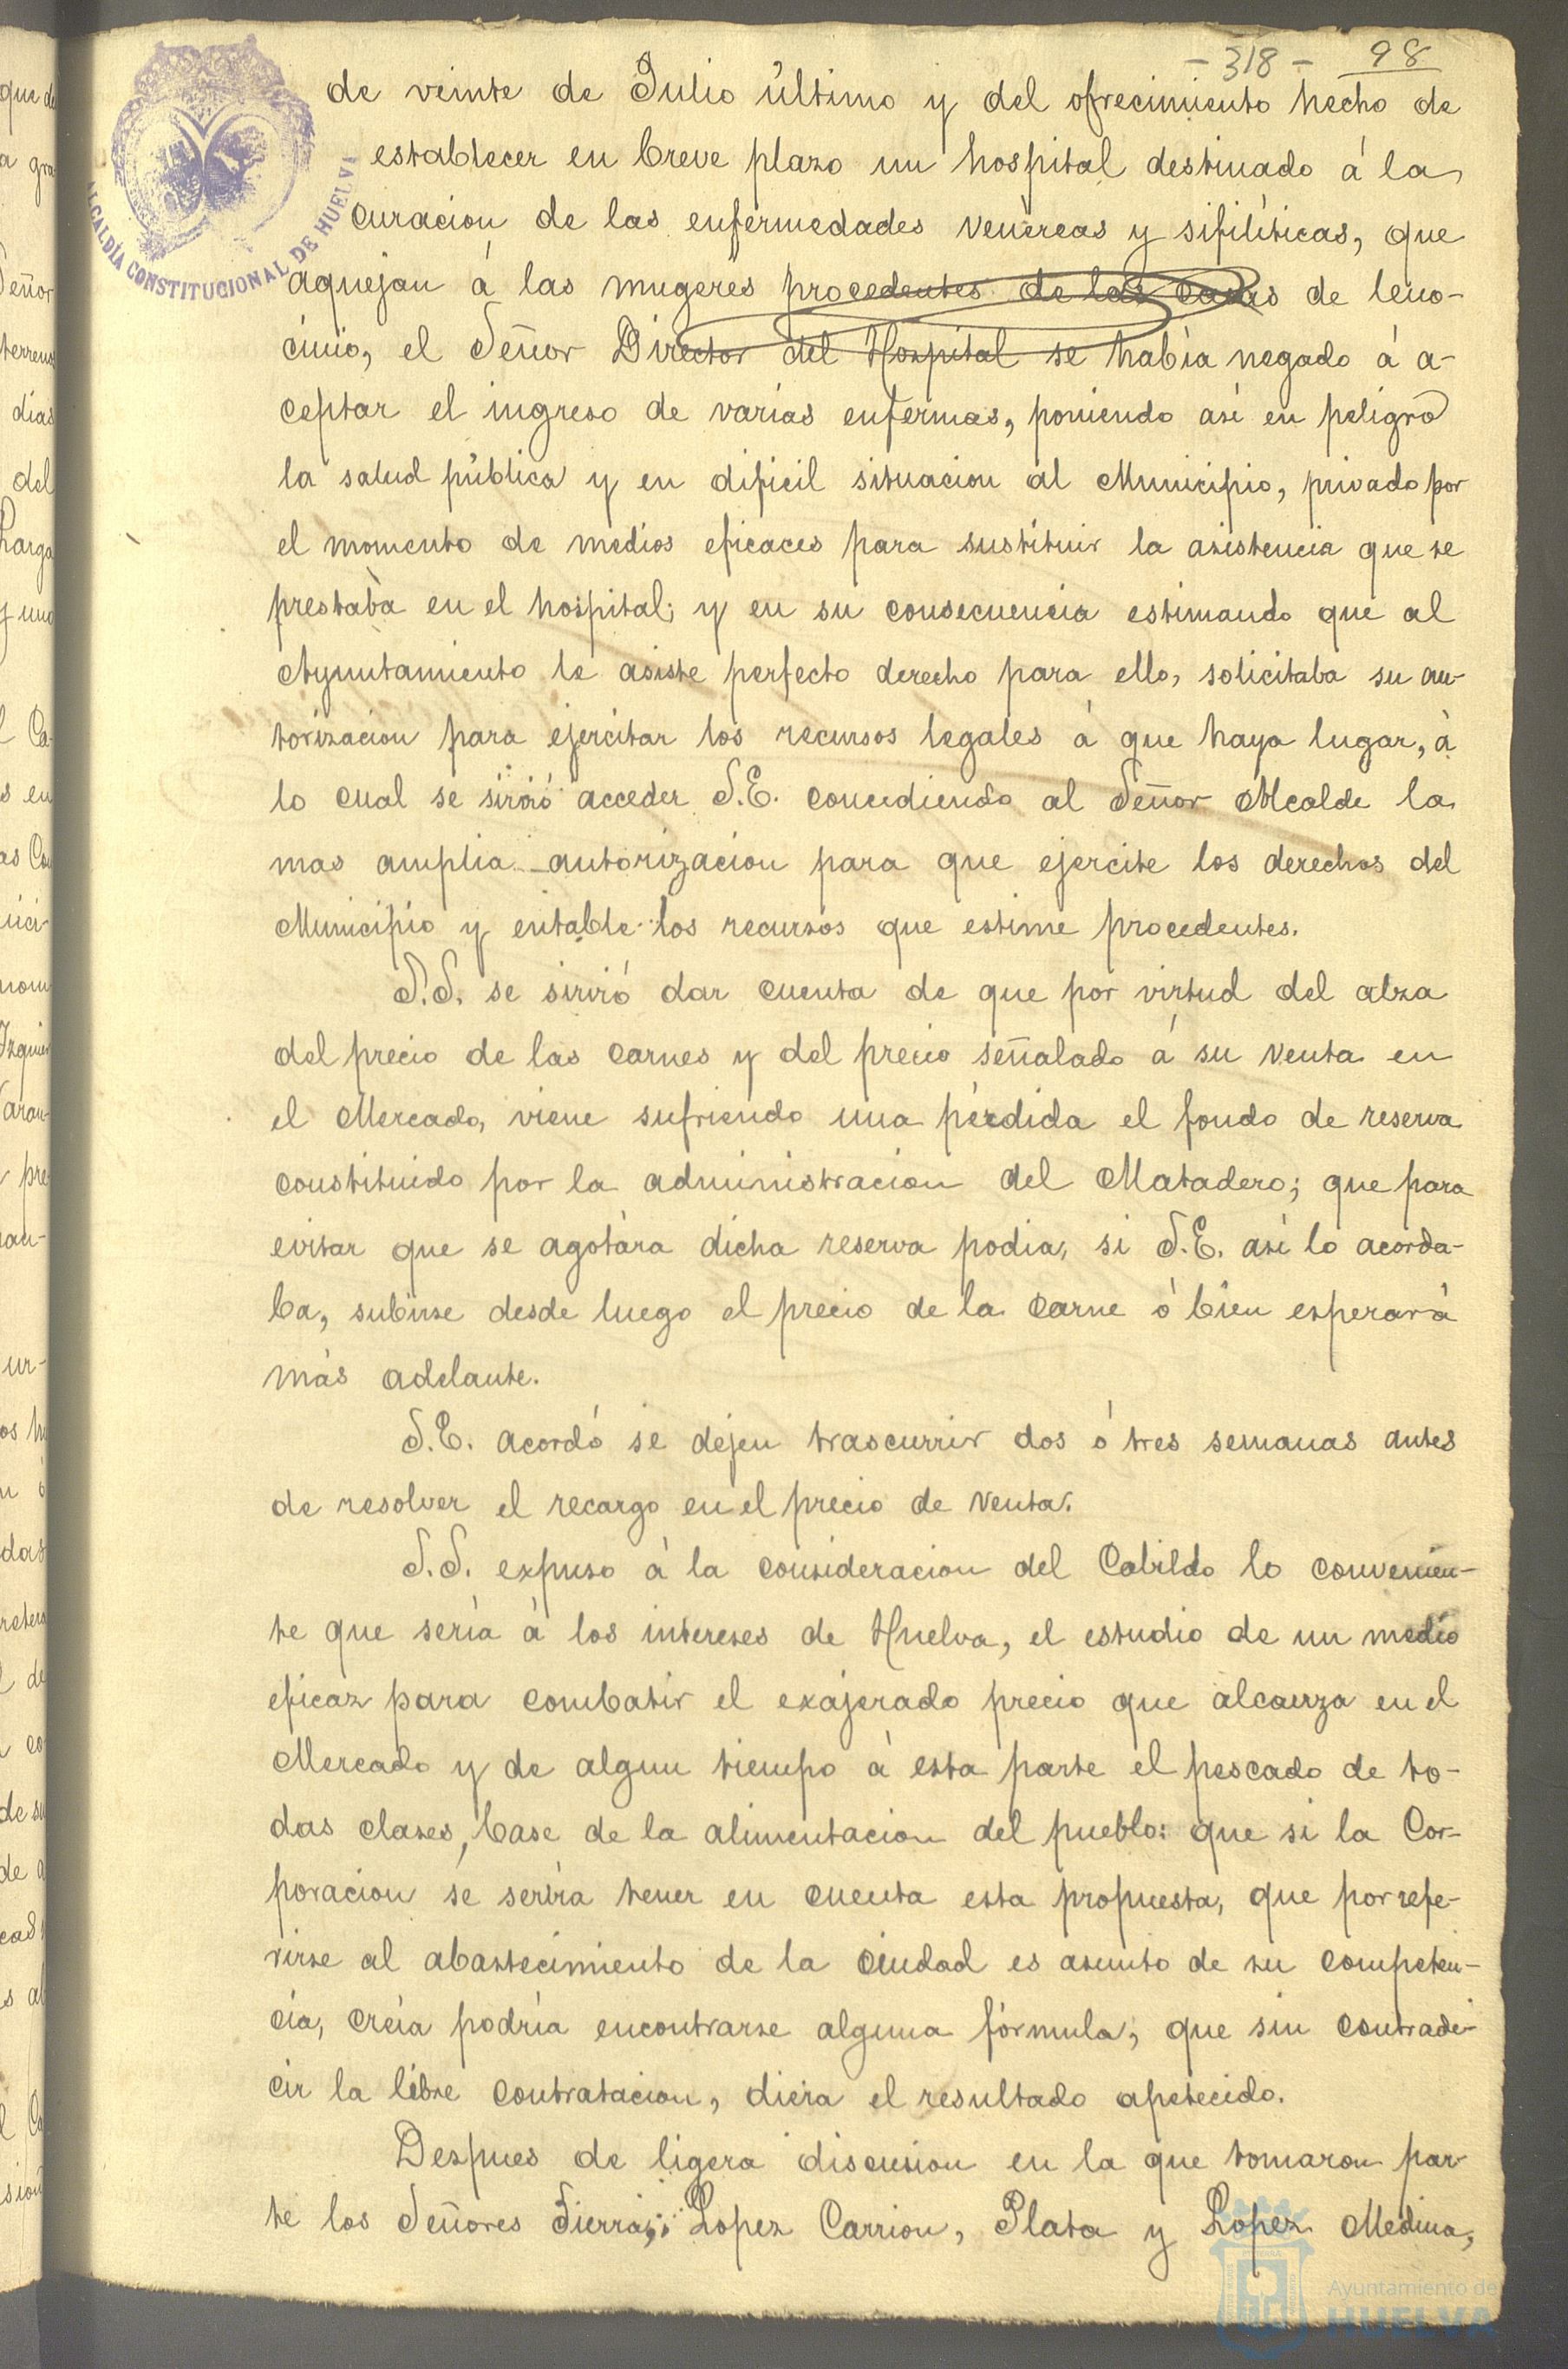 - 318 - 98
ALCALDÍA CONSTITUCIONAL DE HUELVA
de veinte de Julio último y del ofrecimiento hecho de
establecer en breve plazo un hospital destinado á la
curacion de las enfermedades venéreas y sifilíticas, que
aquejan á las mugeres procedentes de las casas de leno-
cinio, el Señor Director del Hospital se había negado á a-
ceptar el ingreso de varias enfermas, poniendo así en peligro
la salud pública y en dificil situacion al Municipio, privado por
el momento de medios eficaces para sustituir la asistencia que se
prestaba en el hospital; y en su consecuencia estimando que al
Ayuntamiento le asiste perfecto derecho para ello, solicitaba su au-
torizacion para ejercitar los recursos legales á que haya lugar, á
lo cual se sirvió acceder S.E. concediendo al Señor Alcalde la
mas amplia autorizacion para que ejercite los derechos del
Municipio y entable los recursos que estime procedentes.
S.S. se sirvió dar cuenta de que por virtud del alza
del precio de las carnes y del precio señalado á su venta en
el Mercado, viene sufriendo una pérdida el fondo de reserva
constituido por la administracion del Matadero; que para
evitar que se agotára dicha reserva podia, si S.E. así lo acorda-
ba, subirse desde luego el precio de la carne ó bien esperar á
más adelante.
S.E. acordó se dejen trascurrir dos ó tres semanas antes
de resolver el recargo en el precio de venta.
S.S. expuso á la consideracion del Cabildo lo convenien-
te que sería á los intereses de Huelva, el estudio de un medio
eficaz para combatir el exajerado precio que alcanza en el
Mercado y de algun tiempo á esta parte el pescado de to-
das clases, base de la alimentacion del pueblo: que si la Cor-
poracion se servía tener en cuenta esta propuesta, que por refe-
rirse al abastecimiento de la Ciudad es asunto de su competen-
cia, creía podría encontrarse alguna fórmula, que sin contrade-
cir la libre contratacion, diera el resultado apetecido.
Despues de ligera discusion en la que tomaron par-
te los Señores Sierra, Lopez Carrion, Plata y Lopez Medina,
Ayuntamiento de
HUELVA